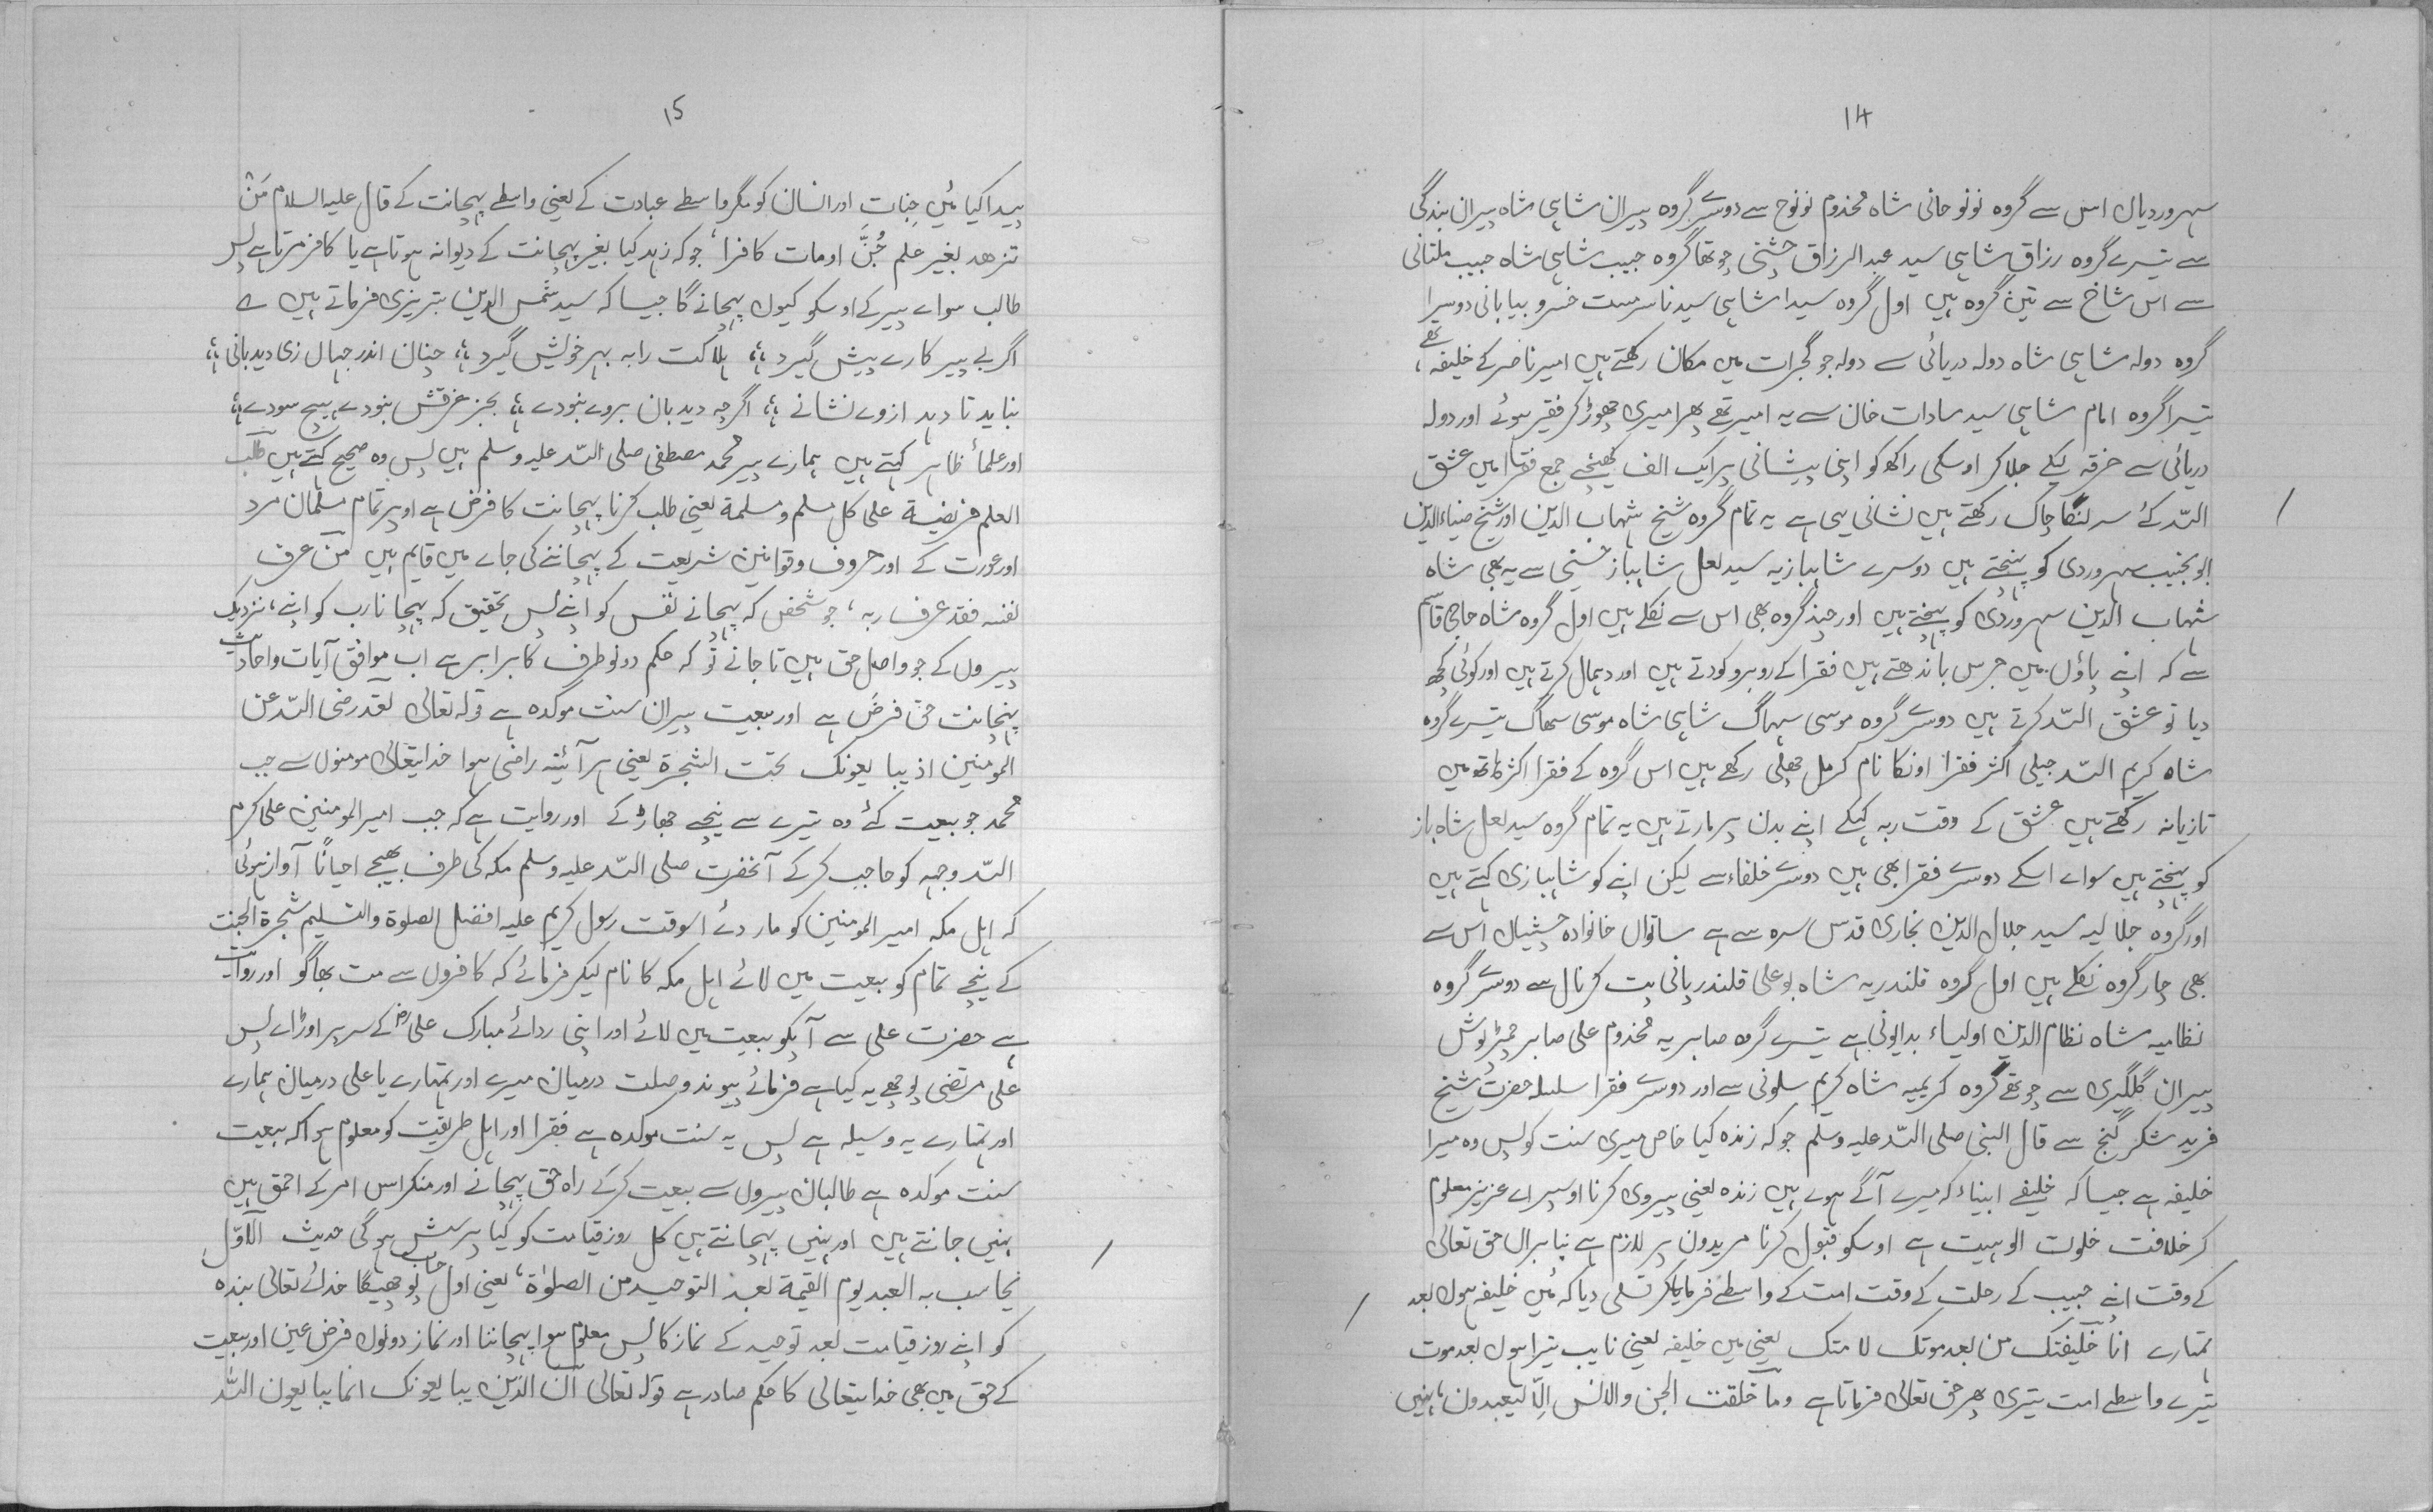 ۱۴
سہروردیاں اس سے گروہ نونوحانی شاہ مخدوم نونوح سے دوسرے گروہ پیران شاہی شاہ پیران بندگی
سے تیسرے گروہ رزاق شاہی سید عبد الرزاق چشتی چوتھا گروہ حبیب شاہی شاہ حبیب ملتانی
سے اس شاخ سے تین گروہ ہیں اول گروہ سیدا شاہی سید نا سرمست خسرو بیابانی دوسرا
گروہ دولہ شاہی شاہ دولہ دریائی سے دولہ جو گجرات میں مکان رکھتے ہیں امیر ناصر کے خلیفہ تھے،
تیسرا گروہ امام شاہی سید سادات خان سے یہ امیر تھے پھر امیری چھوڑ کر فقیر ہوئے اور دولہ
دریائی سے خرقہ لیکے جلا کر اوسکی راکھ کو اپنی پیشانی پر ایک الف کھینچے جمع فقرا میں عشق
اللہ کئے سر لنگا چاک رکھتے ہیں نشانی یہی ہے یہ تمام گروہ شیخ شہاب الدین اور شیخ ضیاء الدین
ابو نجیب سہروردی کو پہنچتے ہیں دوسرے شاہبازیہ سید لعل شاہباز حسنی سے یہ بھی شاہ
شہاب الدین سہروردی کو پہنچتے ہیں اور چند گروہ بھی اس سے نکلے ہیں اول گروہ شاہ حاجی قاسم
سے کہ اپنے پاؤں میں جرس باندھتے ہیں فقرا کے روبرو کودتے ہیں اور دہمال کرتے ہیں اور کوئی کچھ
دیا تو عشق اللہ کرتے ہیں دوسرے گروہ موسی سہاگ شاہی شاہ موسی سہاگ تیسرے گروہ
شاہ کریم اللہ جیلی اکثر فقرا اونکا نام کرمل جھلی رکھے ہیں اس گروہ کے فقرا اکثر ہاتھ میں
تازیانہ رکھتے ہیں عشق کے وقت ربہ کہکے اپنے بدن پر مارتے ہیں یہ تمام گروہ سید لعل شاہ باز
کو پہنچتے ہیں سواے اسکے دوسرے فقرا بھی ہیں دوسرے خلفاء سے لیکن اپنے کو شاہبازی کہتے ہیں
اور گروہ جلالیہ سید جلال الدین بخاری قدس سرہ سے ہے ساتواں خانوادہ چشتیاں اس سے
بھی چار گروہ نکلے ہیں اول گروہ قلندریہ شاہ بو علی قلندر پانی پت کرنال سے دوسرے گروہ
نظامیہ شاہ نظام الدین اولیاء بدایونی ہے تیسرے گروہ صابریہ مخدوم علی صابر چمڑپوش
پیران کلیگیری سے چوتھے گروہ کریمیہ شاہ کریم سلونی سے اور دوسرے فقرا سلسلہ حضرت شیخ
فرید شکر گنج سے قال النبی صلی اللہ علیہ وسلم جو کہ زندہ کیا خاص میری سنت کو پس وہ میرا
خلیفہ ہے جیسا کہ خلیفے انبیاء کہ میرے آگے ہوے ہیں زندہ یعنی پیروی کرنا اوسپر اے عزیز معلوم
کر خلافت خلوت الوہیت ہے اوسکو قبول کرنا مریدون پر لازم ہے بنا براں حق تعالی
کے وقت اپنے حبیب کے رحلت کے وقت امت کے واسطے فرمایا کر تسلی دیا کہ مَیں خلیفہ ہوں بعد
تمہارے انا خلیفتک من بعد موتک لا متک یعنی میں خلیفہ یعنی نایب تیرا ہوں بعد موت
تیرے واسطے امت تیری پھر حق تعالی فرماتا ہے وما خلقت الجن والانس الّا لیعبدون، نہیں
۱۵
پیدا کیا مَیں جنات اور انسان کو مگر واسطے عبادت کے یعنی واسطے پہچانت کے قال علیہ السلام مَنْ
تزھد بغیر علم جُنَّ او مات کافرا، جو کہ زہد کیا بغیر پہچانت کے دیوانہ ہوتا ہے یا کافر مرتا ہے پس
طالب سواے پیر کے اوسکو کیوں پہچانے گا جیسا کہ سید شمس الدین تبریزی فرماتے ہیں ے
اگر بے پیر کارے پیش گیرد ؛؛ ہلاکت را بہ بہر خویش گیرد ؛؛ چنان اندر جہاں زی دیدبانی ؛؛
نباید تا دہد ازوے نشانے ؛؛ اگرچہ دیدبان بروے نبودے ؛؛ بجز غرقش نبودے ہیچ سودے ؛؛
اور علماء ظاہر کہتے ہیں ہمارے پیر محمد مصطفی صلی اللہ علیہ وسلم ہیں پس وہ صحیح کہتے ہیں طلب
العلم فریضۃ علی کل مسلم ومسلمۃ یعنی طلب کرنا پہچانت کا فرض ہے اوپر تمام مسلمان مرد
اور عورت کے اور حروف وقوانین شریعت کے پہچاننے کی جاے میں قایم ہیں من عرف
نفسہ فقد عرف ربہ، جو شخص کہ پہچانے نفس کو اپنے پس تحقیق کہ پہچانا رب کو اپنے، نزدیک
پیروں کے جو واصل حق ہیں تا جانے تُو کہ حکم دونو طرف کا برابر ہے اب موافق آیات واحادیث
پہچانت حق فرض ہے اور بیعت پیران سنت موکدہ ہے قولہ تعالی لقد رضی اللہ عن
المومنین اذ یبا یعونک تحت الشجرۃ یعنی ہر آئینہ راضی ہوا خدایتعالی مومنوں سے جب
محمد جو بیعت کئے وہ تیرے سے نیچے جھاڑ کے اور روایت ہے کہ جب امیر المومنین علی کرم
اللہ وجہہ کو حاجب کر کے آنحضرت صلی اللہ علیہ وسلم مکہ کی طرف بھیجے احیاناً آواز ہوئی
کہ اہل مکہ امیر المومنین کو مار دئے اسوقت رسول کریم علیہ افضل الصلوۃ والتسلیم شجرۃ الجنت
کے نیچے تمام کو بیعت میں لائے اہل مکہ کا نام لیکر فرمائے کہ کافروں سے مت بھاگو اور روایت
ہے حضرت علی سے آپکو بیعت میں لائے اور اپنی ردائے مبارک علیؓ کے سر پر اوڑاے پس
علی مرتضی پوچھے یہ کیا ہے فرمائے پیوند وصلت درمیان میرے اور تمہارے یا علی درمیان ہمارے
اور تمہارے یہ وسیلہ ہے پس یہ سنت موکدہ ہے فقرا اور اہل طریقت کو معلوم ہوا کہ بیعت
سنت موکدہ ہے طالبان پیروں سے بیعت کرکے راہ حق پہچانے اور منکر اس امر کے احمق ہیں
نہیں جانتے ہیں اور نہیں پہچانتے ہیں کل روز قیامت کو کیا پرسش ہوگی حدیث الاوّل
یحاسب بہ العبد یوم القیمۃ بعد التوحید من الصلوٰۃ، یعنی اول حساب پوچھیگا خدائے تعالی بندہ
کو اپنے روز قیامت بعد توحید کے نماز کا پس معلوم ہوا پہچاننا اور نماز دونوں فرض عین اور بیعت
کے حق میں بھی خدایتعالی کا حکم صادر ہے قولہ تعالی ان الذین یبا یعونک انما یبا یعون اللہ